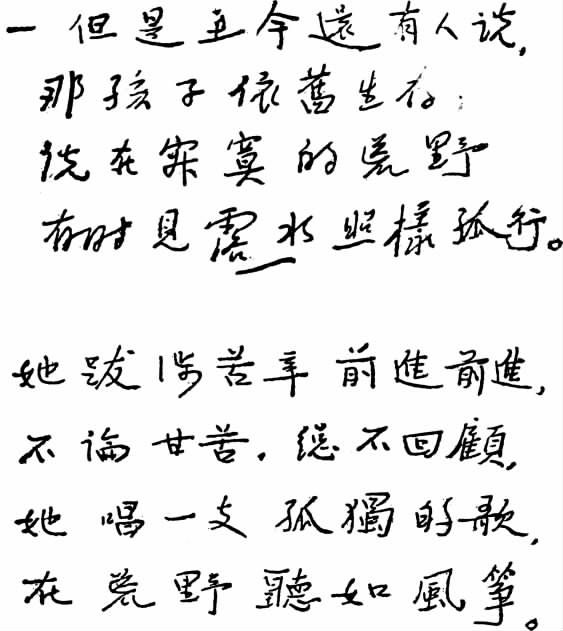 一但是至今還有人说,
那孩子依舊生存;
说在寂寞的荒野
有时見露水照樣孤行。
她跋涉苦辛前進前進,
不論甘苦.總不回顧,
她唱一支孤獨的歌,
在荒野聽如風箏。